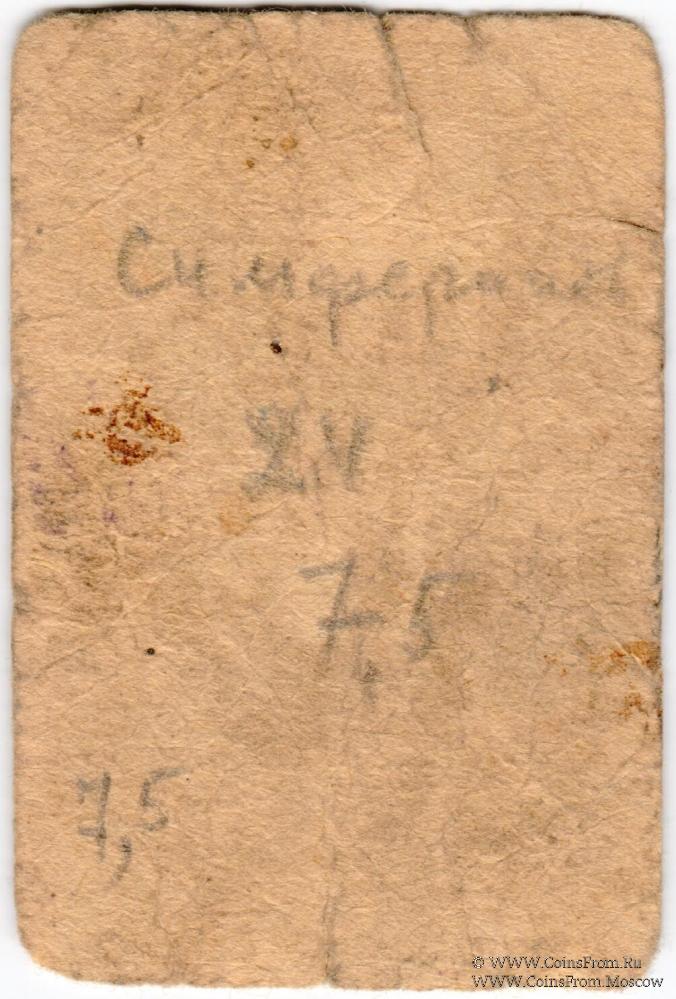 Симферапол
2,4
7,5
7,5
© WWW.CoinsFrom.Ru
WWW.CoinsFrom.Moscow